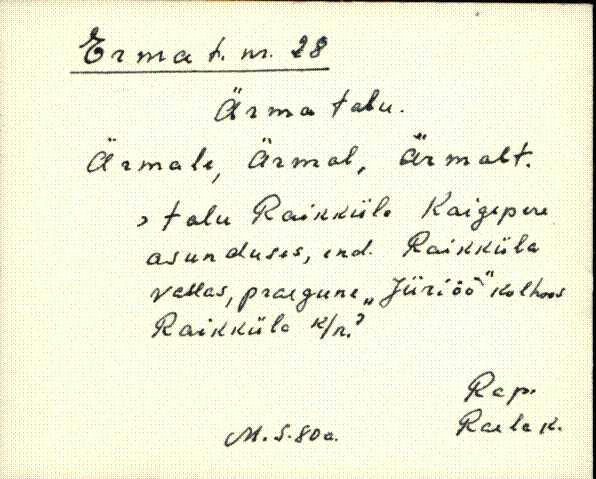 Erma t. nr. 28
Ärma talu.
Ärmale, Ärmal, Ärmalt.
› talu Raikküla Kaigepere
asunduses, end. Raikküla
vallas, praegune „Jüriöö" kolhoos
Raikküla k/n.?
Rap.
Raela k.
M. S. 80a.